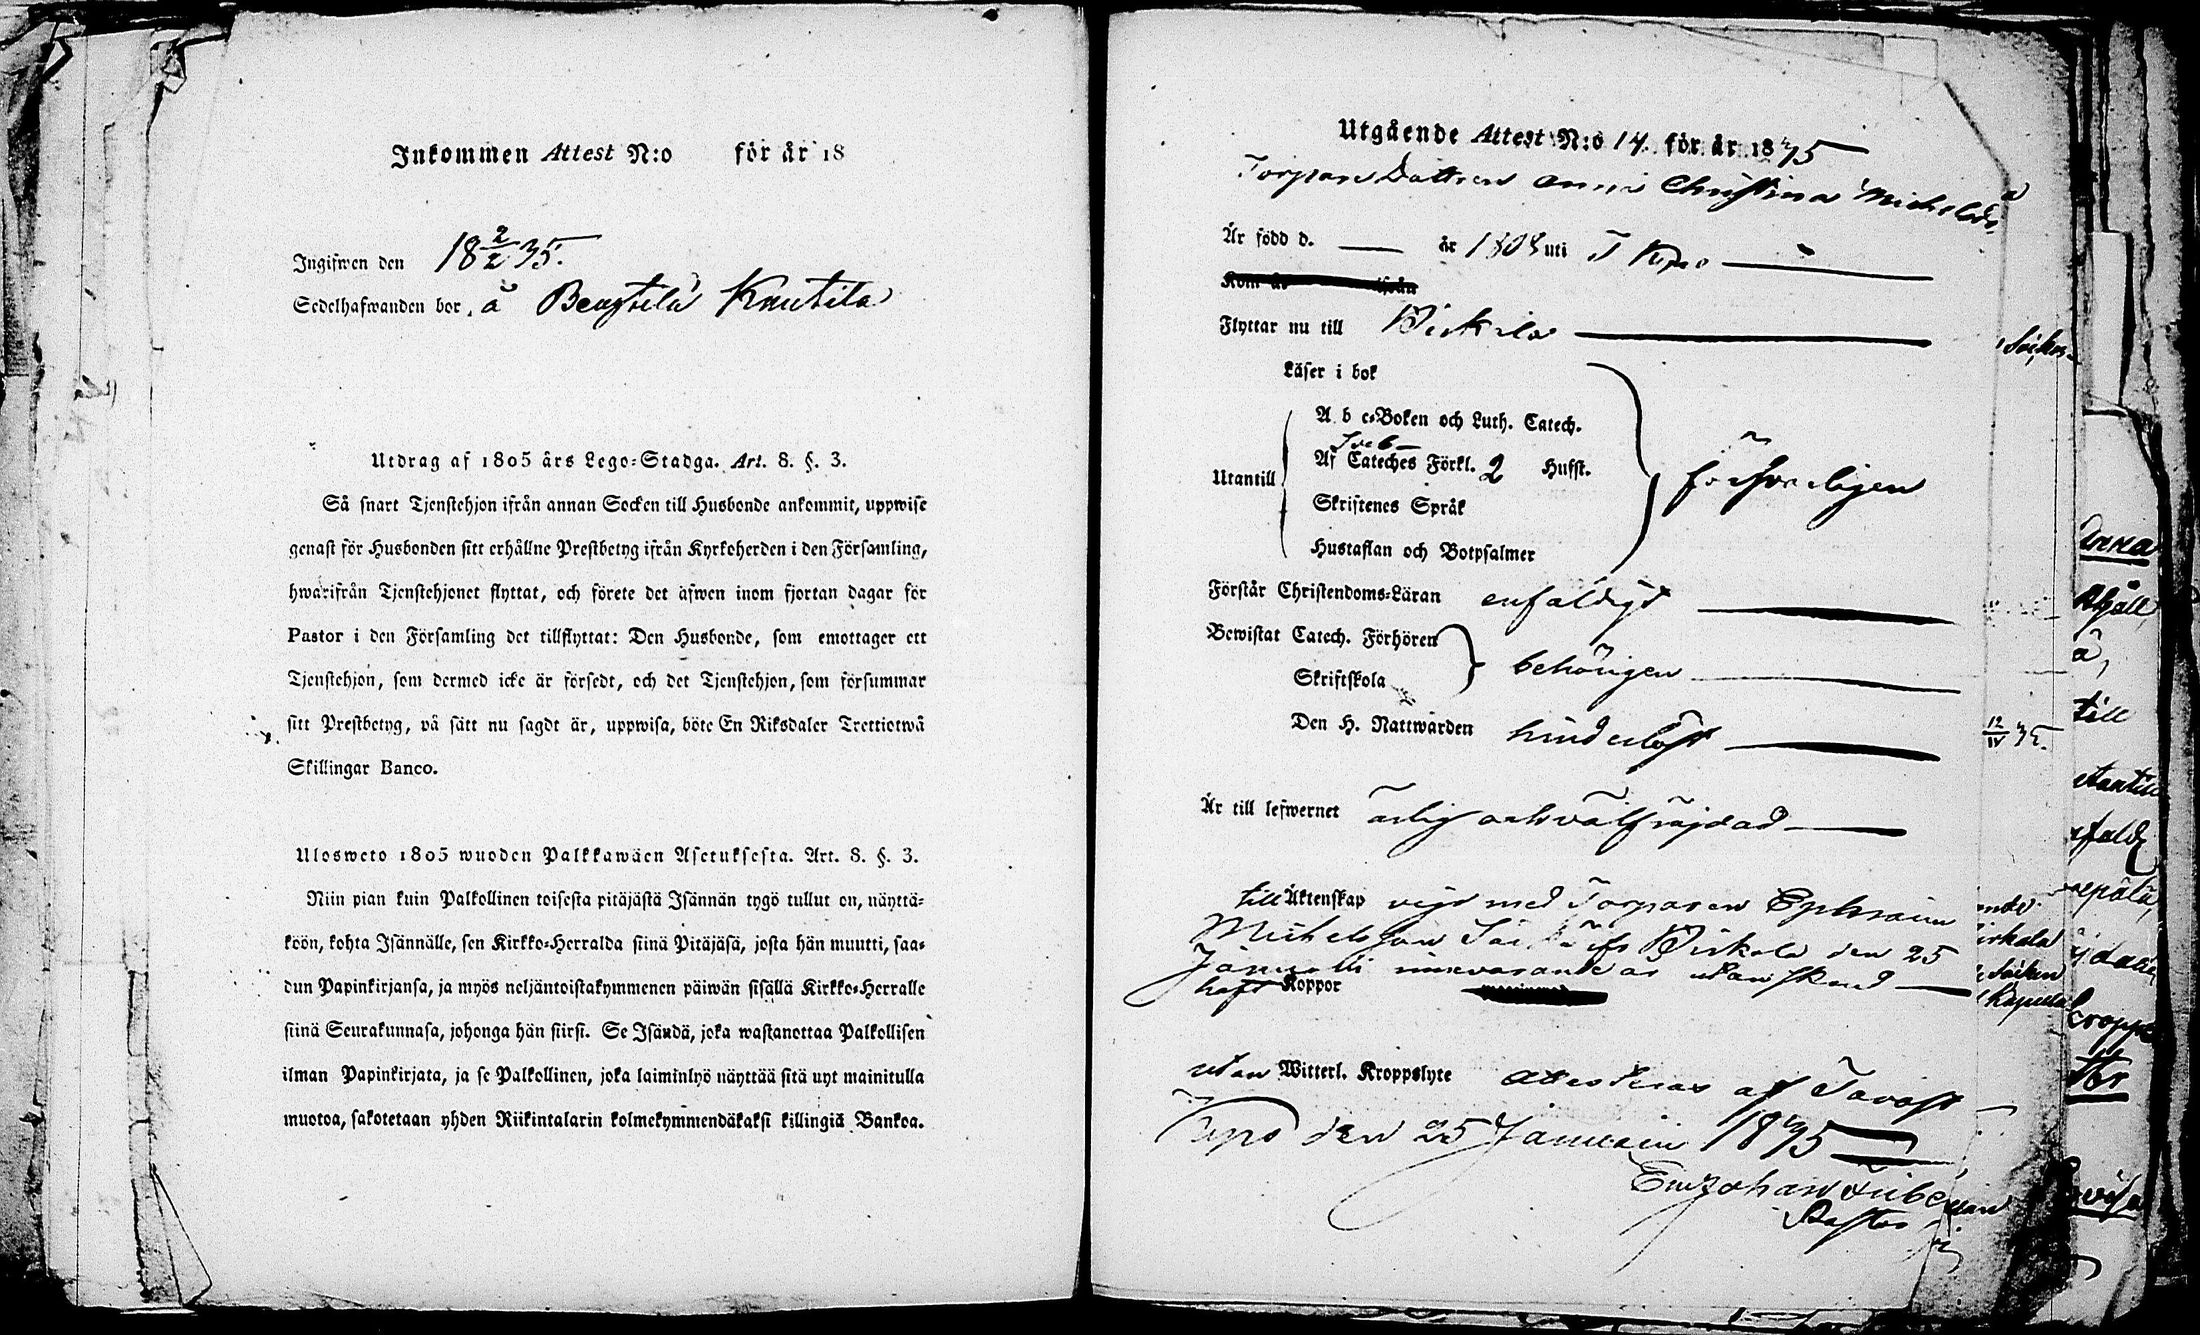 Inkommen Attest N:o för år 18
Ingifwen den 18 2/2 35.
Sedelhafwanden bor. å Bengtilä Knutila
Utdrag af 1805 års Lego-Stadga. Art. 8. §. 3.
Så snart Tjenstehjon ifrån annan Socken till Husbonde ankommit, uppwise
genast för Husbonden sitt erhållne Prestbetyg ifrån Kyrkoherden i den Församling,
hwarifrån Tjenstehjonet flyttat, och förete det äfwen inom fjortan dagar för
Pastor i den Församling det tillflyttat: Den Husbonde, som emottager ett
Tjenstehjon, som dermed icke är försedt, och det Tjenstehjon, som försummar
sitt Prestbetyg, på sätt nu sagdt är, uppwisa, böte En Riksdaler Trettiotwå
Skillingar Banco.
Ulosweto 1805 wuoden Palkkawäen Asetuksesta. Art. 8. §. 3.
Niin pian kuin Palkollinen toisesta pitäjästä Isännän tygö tullut on, näyttä-
köön, kohta Isännälle, sen Kirkko-Herralda siinä Pitäjäsä, josta hän muutti, saa-
dun Papinkirjansa, ja myös neljäntoistakymmenen päiwän sisällä Kirkko-Herralle
siinä Seurakunnasa, johonga hän siirsi. Se Isändä, joka wastanottaa Palkollisen
ilman Papinkirjata, ja se Palkollinen, joka laiminlyö näyttää sitä nyt mainitulla
muotoa, sakotetaan yhden Riikintalarin kolmekymmendäkaksi killingiä Bankoa.
Utgående Attest N:o 14. för år 1835
Torpare Dottren Anna Christina Michelsdr
Är född d. år 1808 uti T Kyro
Kom år ifrån
Flyttar nu till Birkala
Läser i bok
A b c-Boken och Luth. Catech.
Sveb
Utantill Af Cateches Förkl. 2 Hufst. försvarligen
Skriftenes Språk
Hustaflan och Botpsalmer
Förstår Christendoms-Läran enfaldigt
Bewistat Catech. Förhören
behörigen
Skriftskola
Den H. Nattwarden hinderlöst
Är till lefwernet ärlig och välfräjdad
till Äktenskap vigd med Torparen Ephraim
Michelsson ifr Birkala den 25
Januarii innevarande år utan skad
haft Koppor
utan Witterl. Kroppslyte attesteras af Tavast
Kyro den 25 Januarii 1835
Em Johan
Pastor
Socken
Anna
å,
till
12/IV 35.
utantill
Birkala
Socken